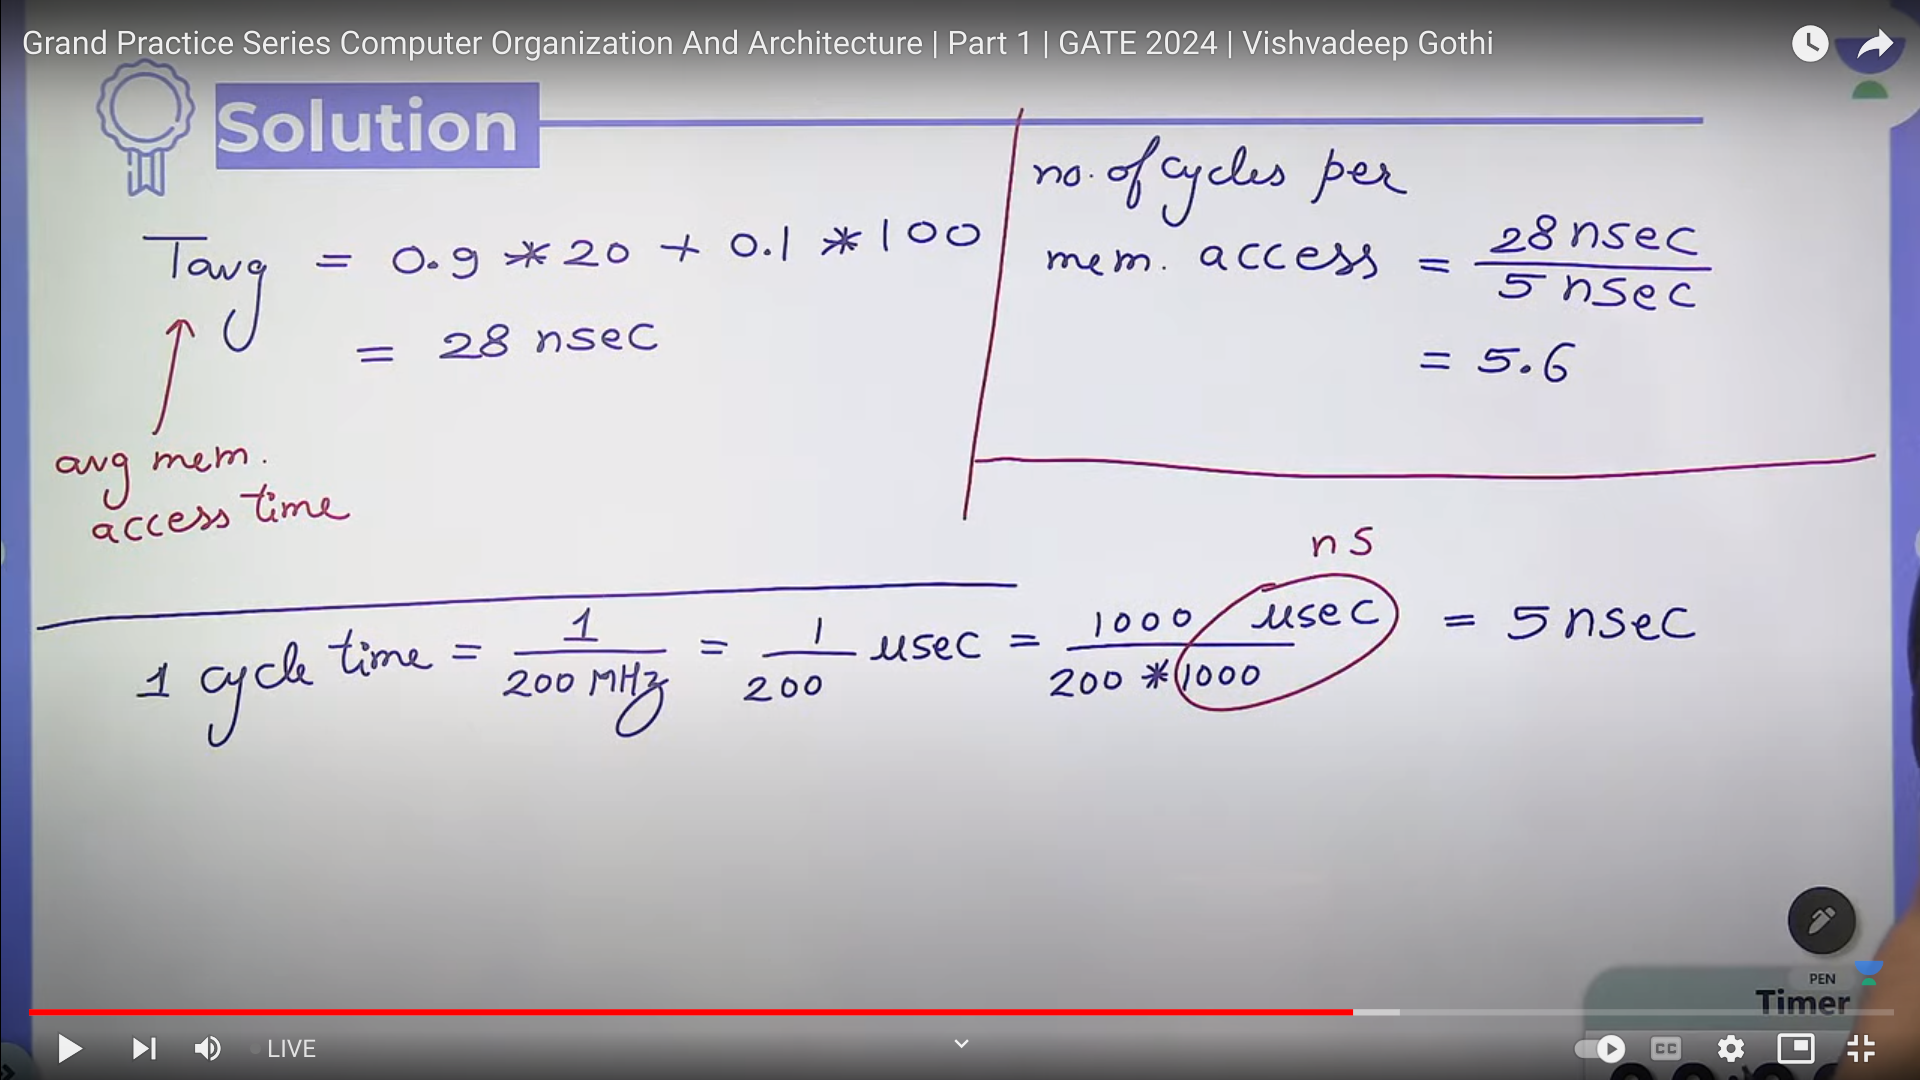 Grand Practice Series Computer Organization And Architecture | Part 1 | GATE 2024 | Vishvadeep Gothi
Solution
Tavg = 0.9 * 20 + 0.1 * 100
= 28 nsec
avg mem.
access time
no. of cycles per
mem. access = 28 nsec / 5 nsec
= 5.6
ns
1 cycle time = 1 / 200 MHz = 1 / 200 μsec = 1000 μsec / 200 * 1000 = 5 nsec
PEN
Timer
LIVE
CC